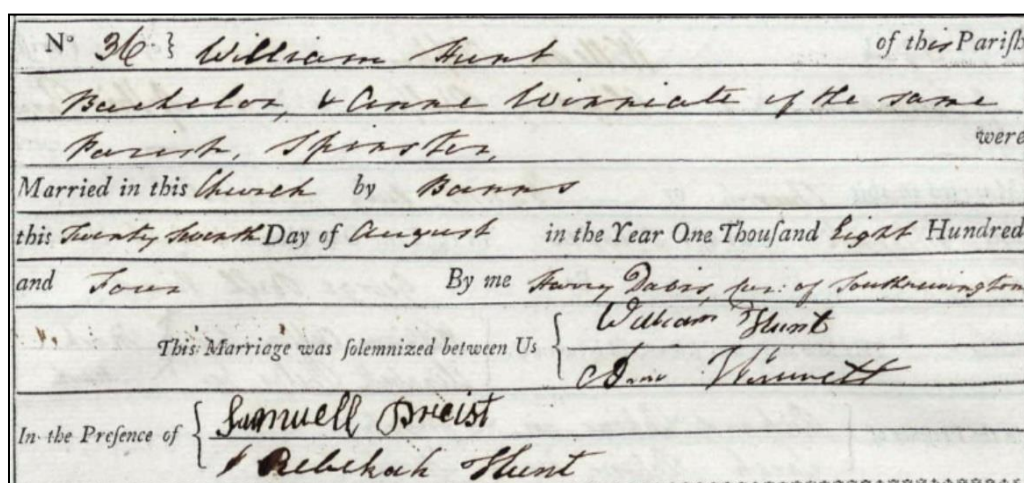 No 36 } William Hunt of this Pariſh
Bachelor, & Anne Winniate of the same
Parish, Spinster, were
Married in this Church by Banns
this Twenty Seventh Day of August in the Year One Thouſand Eight Hundred
and Four By me Harry Davis, Cur: of Southnewington
This Marriage was ſolemnized between Us { William Hunt
Ann Winnett
In the Preſence of { Samuell Breist
Rebekah Hunt